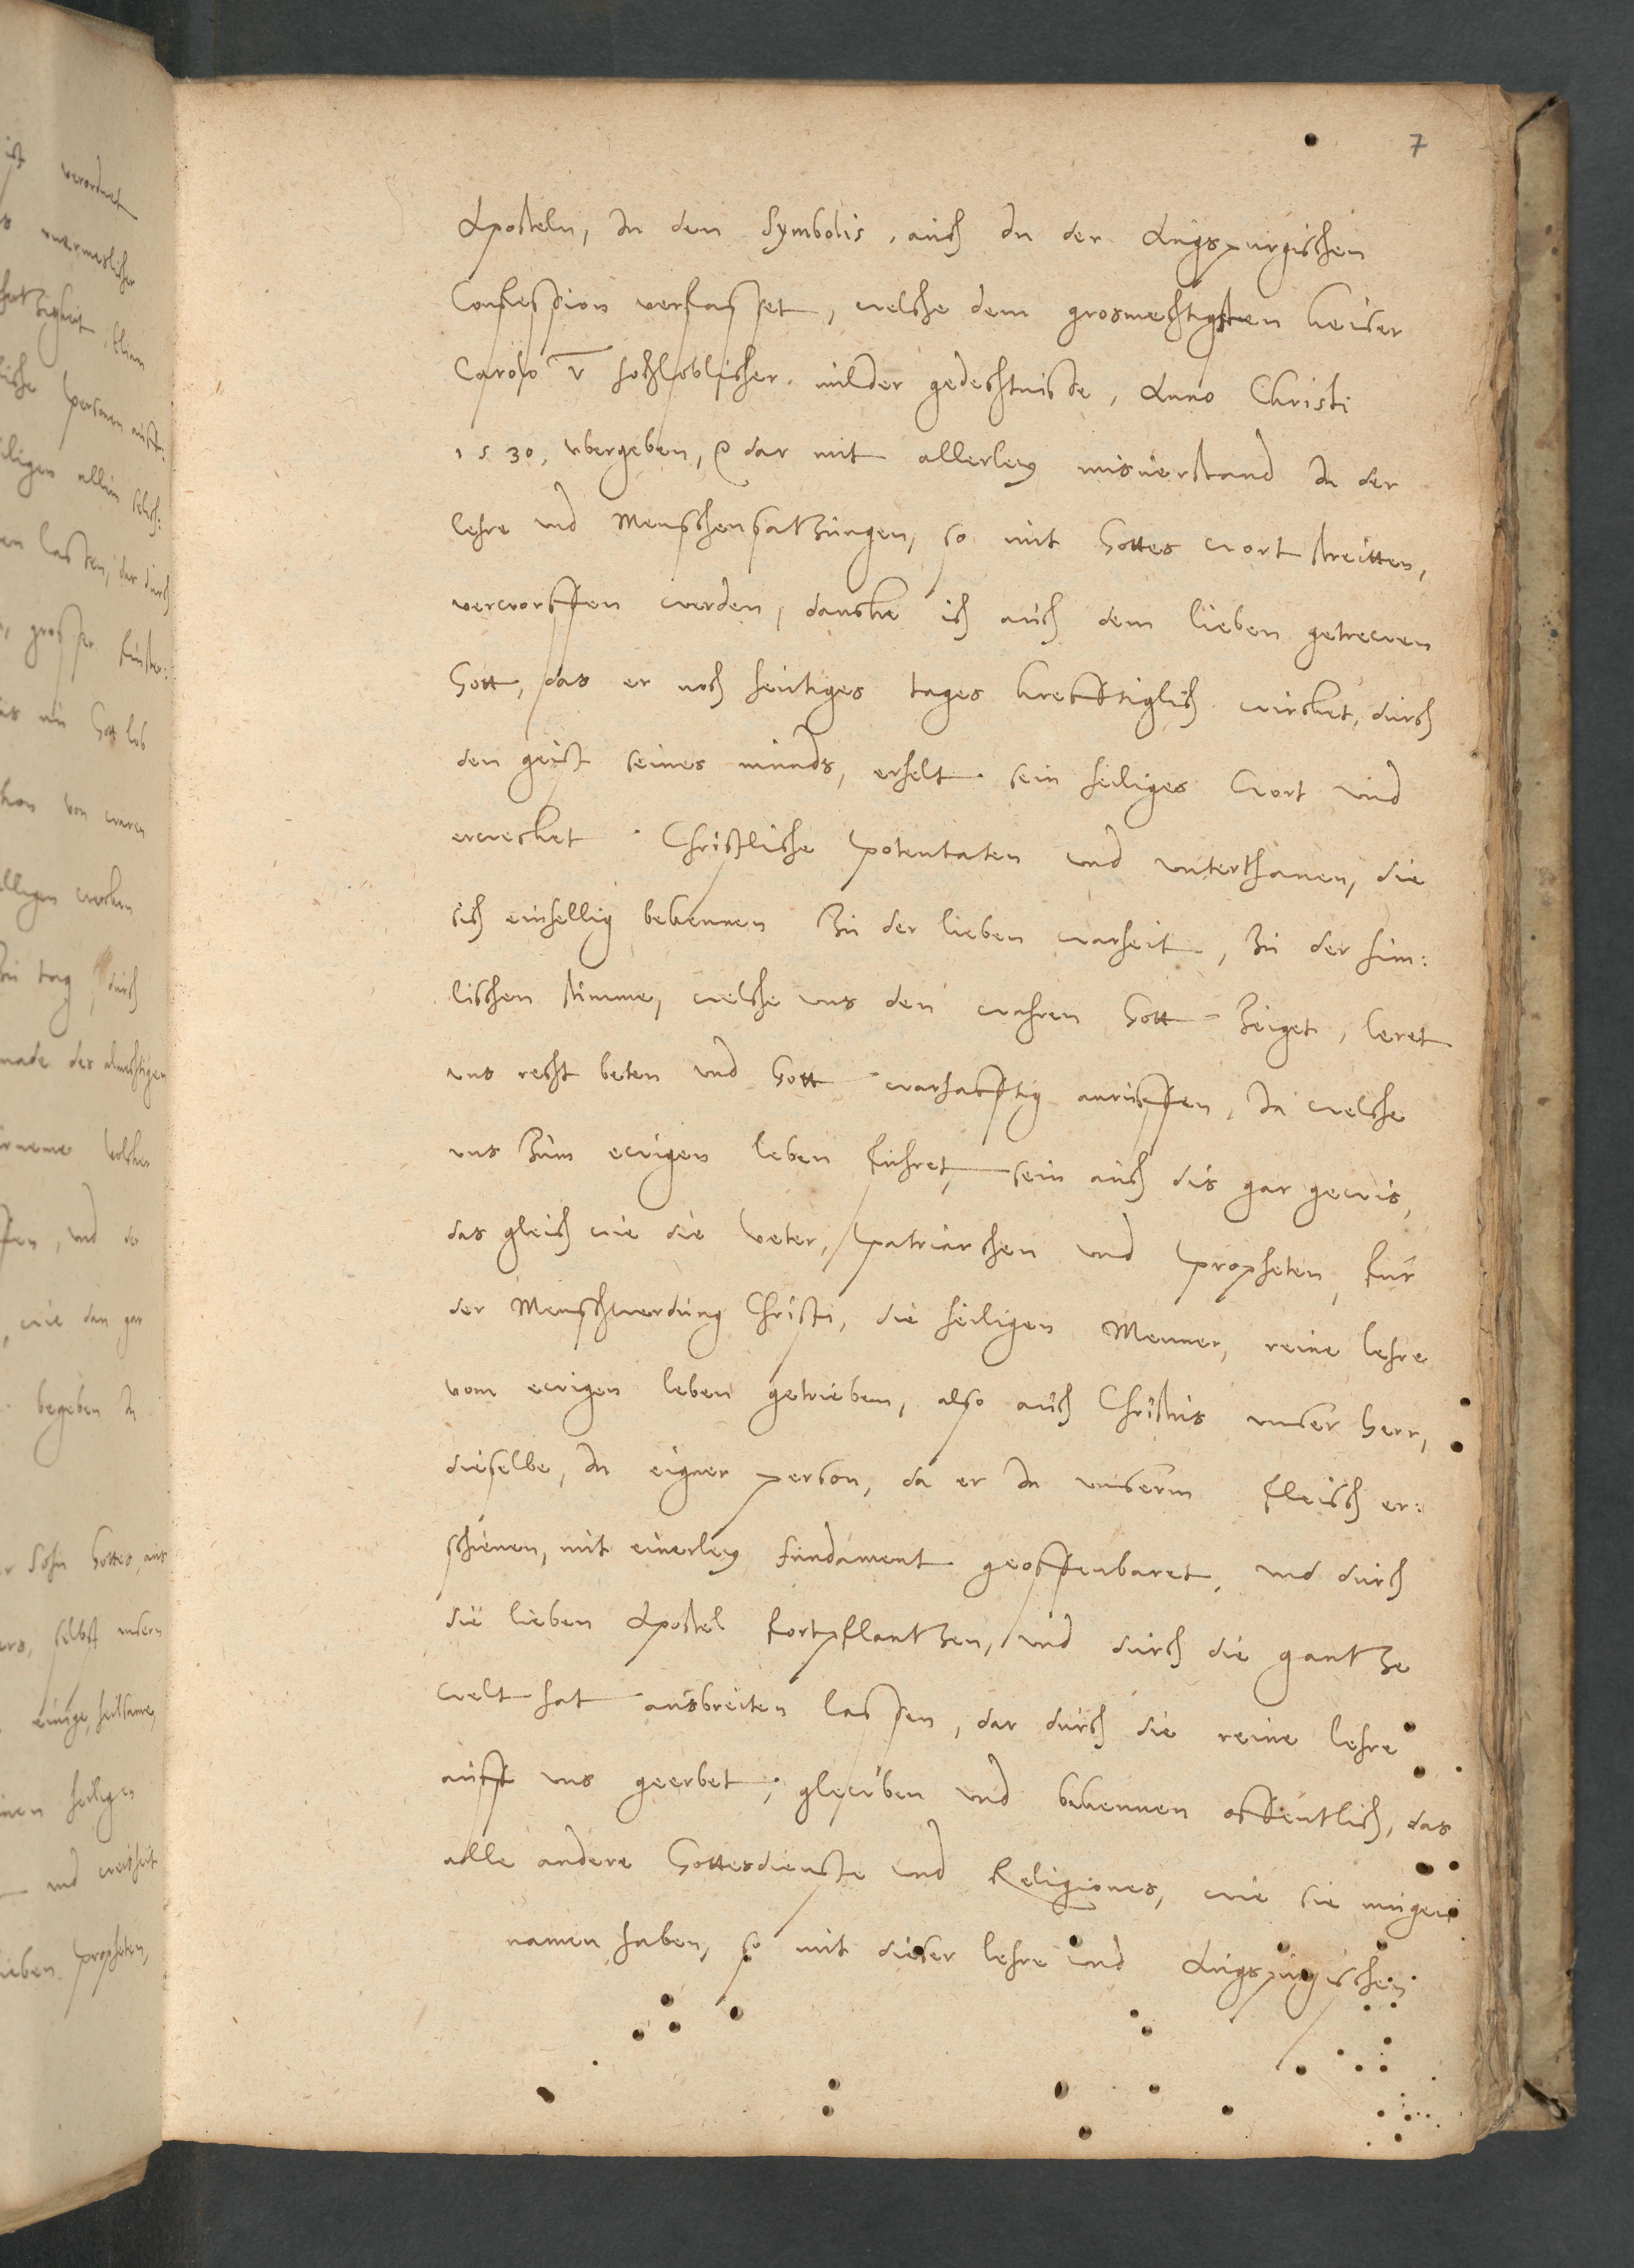 7
Aposteln, In den Symbolis, auch In der Augspurgischen
Confession verfasset, welche dem grosmechtigsten keiser
Carolo V hochloblicher milder gedechtnisse, Anno Christi
1530, vbergeben, dar mit allerley misuerstand In der
lehre vnd Menschensatzungen, so mit Gottes wort streitten,
verworffen werden, dancke ich auch dem lieben getrewen
Gott, das er noch heutiges tages krefftiglich wircket, durch
den geist seines munds, erhelt sein heiliges Wort vnd
erwecket Christliche potentaten vnd vnterthanen, die
sich einhellig bekennen Zu der lieben warheit, Zu der him:
lischen stimme, welche vns den wahren Gott Zeiget, leret
vns recht beten vnd Gott warhafftig anruffen, Ja welche
vns Zum ewigen leben fuhret, sein auch dis gar gewis,
das gleich wie die Veter, patriarchen vnd propheten, fur
der Menschwerdung Christi, die heiligen Menner, reine lehre
vom ewigen leben getrieben, also auch Christus vnser Herr,
dieselbe, In eigner person, da er In vnserm fleisch er:
schienen, mit einerley fundament geoffenbaret, vnd durch
die lieben Apostel fortpflantzen, vnd durch die gantze
welt hat ausbreiten lassen, dar durch die reine lehre
auff vns geerbet, gleuben vnd bekennen offentlich, das
alle andere Gottesdienste vnd Religiones, wie sie mugen
namen haben, so mit dieser lehre vnd Augspurgischen